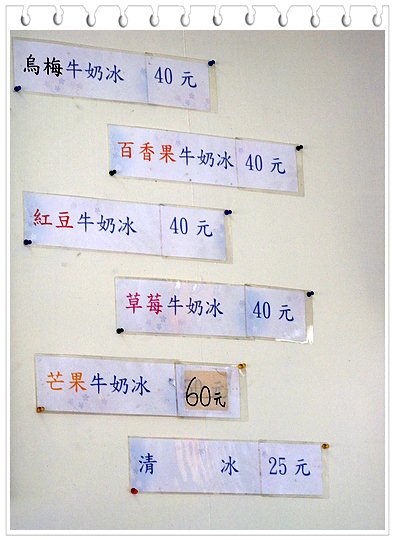 烏梅牛奶冰 40 元
百香果牛奶冰 40 元
紅豆牛奶冰 40 元
草莓牛奶冰 40 元
芒果牛奶冰 60元
清 冰 25 元